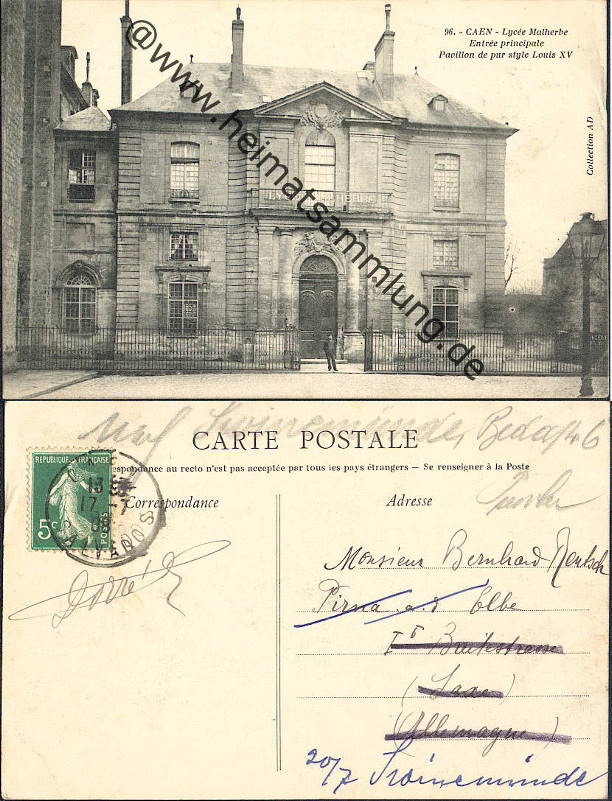 96. - CAEN - Lycée Malherbe
Entrée principale
Pavillon de pur style Louis XV
Collection AD
@www.heimatsammlung.de
Swinemünde,
CARTE POSTALE
respondance au recto n'est pas acceptée par tous les pays étrangers — Se renseigner à la Poste
RÉPUBLIQUE FRANÇAISE
5c
POSTES
13
17 - 7
CALVADOS
Correspondance
Adresse
Monsieur Bernhard Rentsch
Pirna a. d. Elbe
Breitestrasse
(Saxe)
(Allemagne)
20/7 Swinemünde